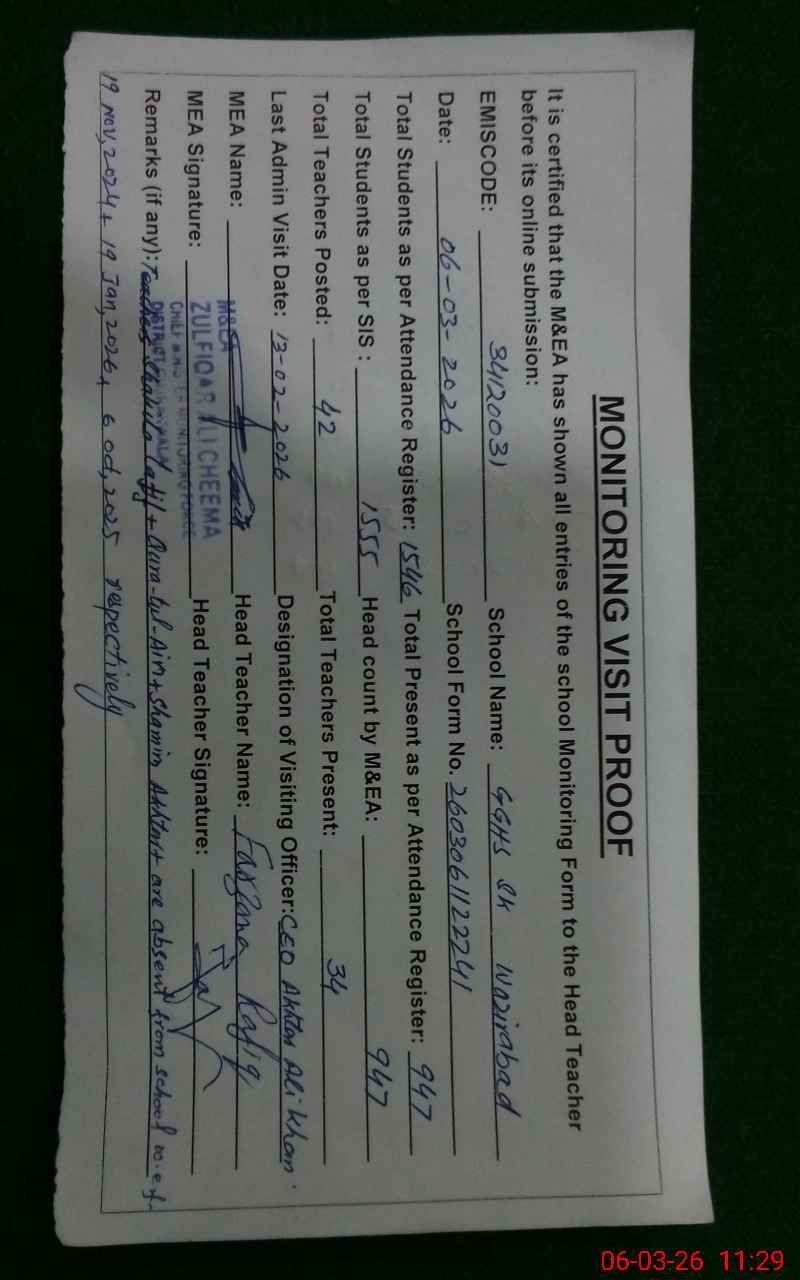 MONITORING VISIT PROOF
It is certified that the M&EA has shown all entries of the school Monitoring Form to the Head Teacher
before its online submission:
EMISCODE: 34120031 School Name: GGHS Wazirabad
Date: 06-03-2026 School Form No. 2603061122241
Total Students as per Attendance Register: 1546 Total Present as per Attendance Register: 947
Total Students as per SIS : 1555 Head count by M&EA: 947
Total Teachers Posted: 42 Total Teachers Present: 34
Last Admin Visit Date: 13-02-2026 Designation of Visiting Officer: CEO Akhtar Ali Khan
MEA Name: Head Teacher Name: Farzana Rafiq
M&EA
ZULFIQAR ALI CHEEMA
CHIEF MINISTER MONITORING FORCE
DISTRICT
MEA Signature: Head Teacher Signature:
Remarks (if any): Teachers Shakila + Qura-tul-Ain + Shamim Akhtar are absent from school w.e.f
19 Nov, 2024 + 19 Jan, 2026, 6 Oct, 2025 respectively
06-03-26 11:29